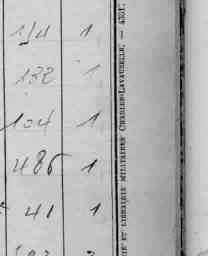 132 1
104 1
486 1
41 1
IE ET LIBRAIRIE MILITAIRES CHARLES-LAVAUZELLE. — 4301.